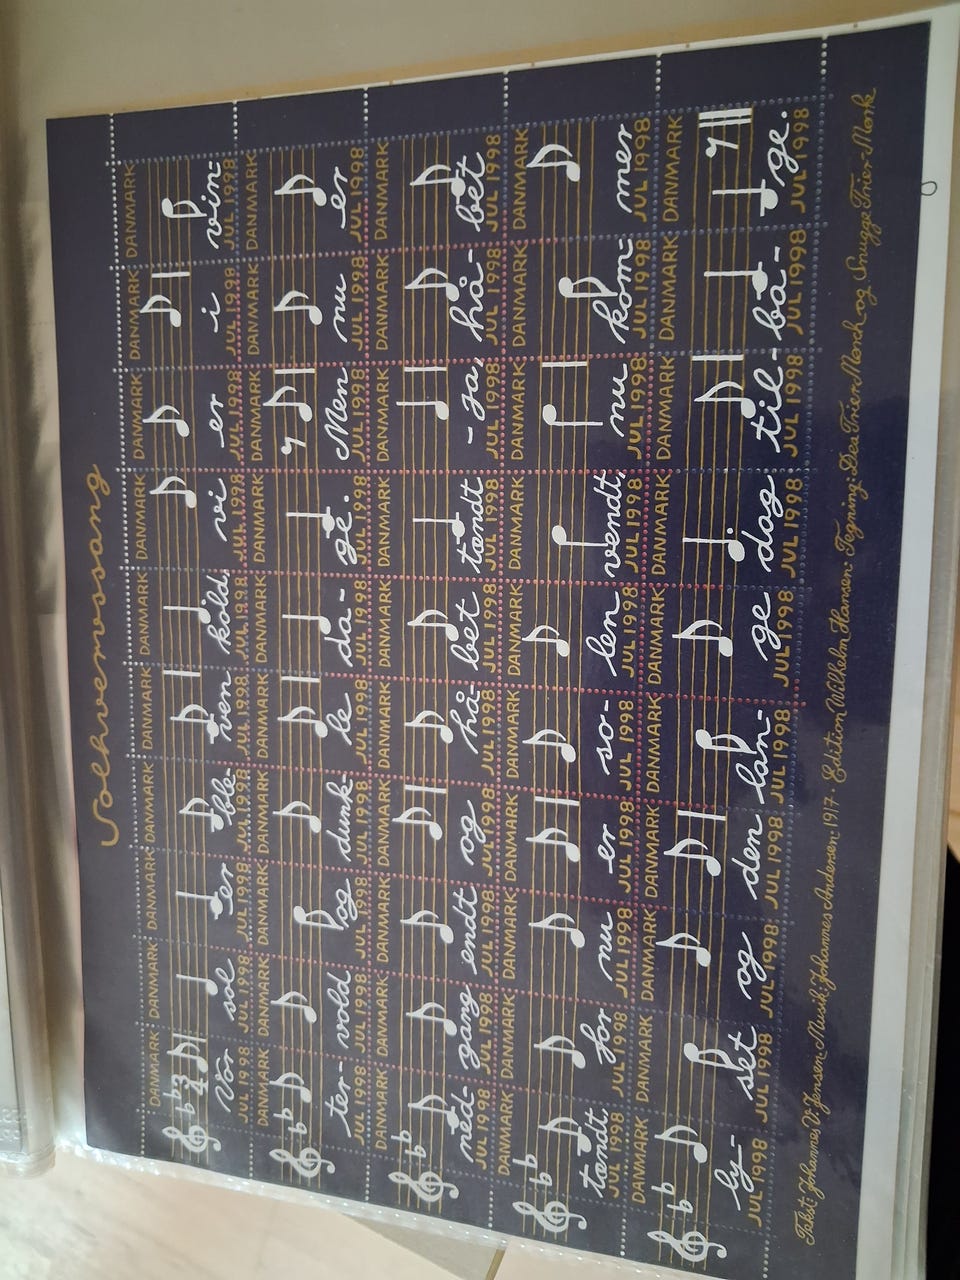 Solhvervssang
DANMARK DANMARK DANMARK DANMARK DANMARK DANMARK DANMARK DANMARK DANMARK DANMARK
3
4
Vor sol er ble- ven kold, vi er i vin-
JUL 1998 JUL 1998 JUL 1998 JUL 1998 JUL 1998 JUL 1998 JUL 1998 JUL 1998 JUL 1998 JUL 1998
DANMARK DANMARK DANMARK DANMARK DANMARK DANMARK DANMARK DANMARK DANMARK DANMARK
ter- vold og dunk- le da- ge. Men nu er
JUL 1998 JUL 1998 JUL 1998 JUL 1998 JUL 1998 JUL 1998 JUL 1998 JUL 1998 JUL 1998 JUL 1998
DANMARK DANMARK DANMARK DANMARK DANMARK DANMARK DANMARK DANMARK DANMARK DANMARK
ned- gang endt og hå- bet tændt - ja, hå- bet
JUL 1998 JUL 1998 JUL 1998 JUL 1998 JUL 1998 JUL 1998 JUL 1998 JUL 1998 JUL 1998 JUL 1998
DANMARK DANMARK DANMARK DANMARK DANMARK DANMARK DANMARK DANMARK DANMARK DANMARK
tændt, for nu er so- len vendt, nu kom- mer
JUL 1998 JUL 1998 JUL 1998 JUL 1998 JUL 1998 JUL 1998 JUL 1998 JUL 1998 JUL 1998 JUL 1998
DANMARK DANMARK DANMARK DANMARK DANMARK DANMARK DANMARK DANMARK DANMARK DANMARK
ly- set og den lan- ge dag til- ba- ge.
JUL 1998 JUL 1998 JUL 1998 JUL 1998 JUL 1998 JUL 1998 JUL 1998 JUL 1998 JUL 1998 JUL 1998
Tekst: Johannes V. Jensen · Musik: Johannes Andersen · 1917 · Edition Wilhelm Hansen · Tegning: Dea Trier Mørch og Snugge Trier-Mørk